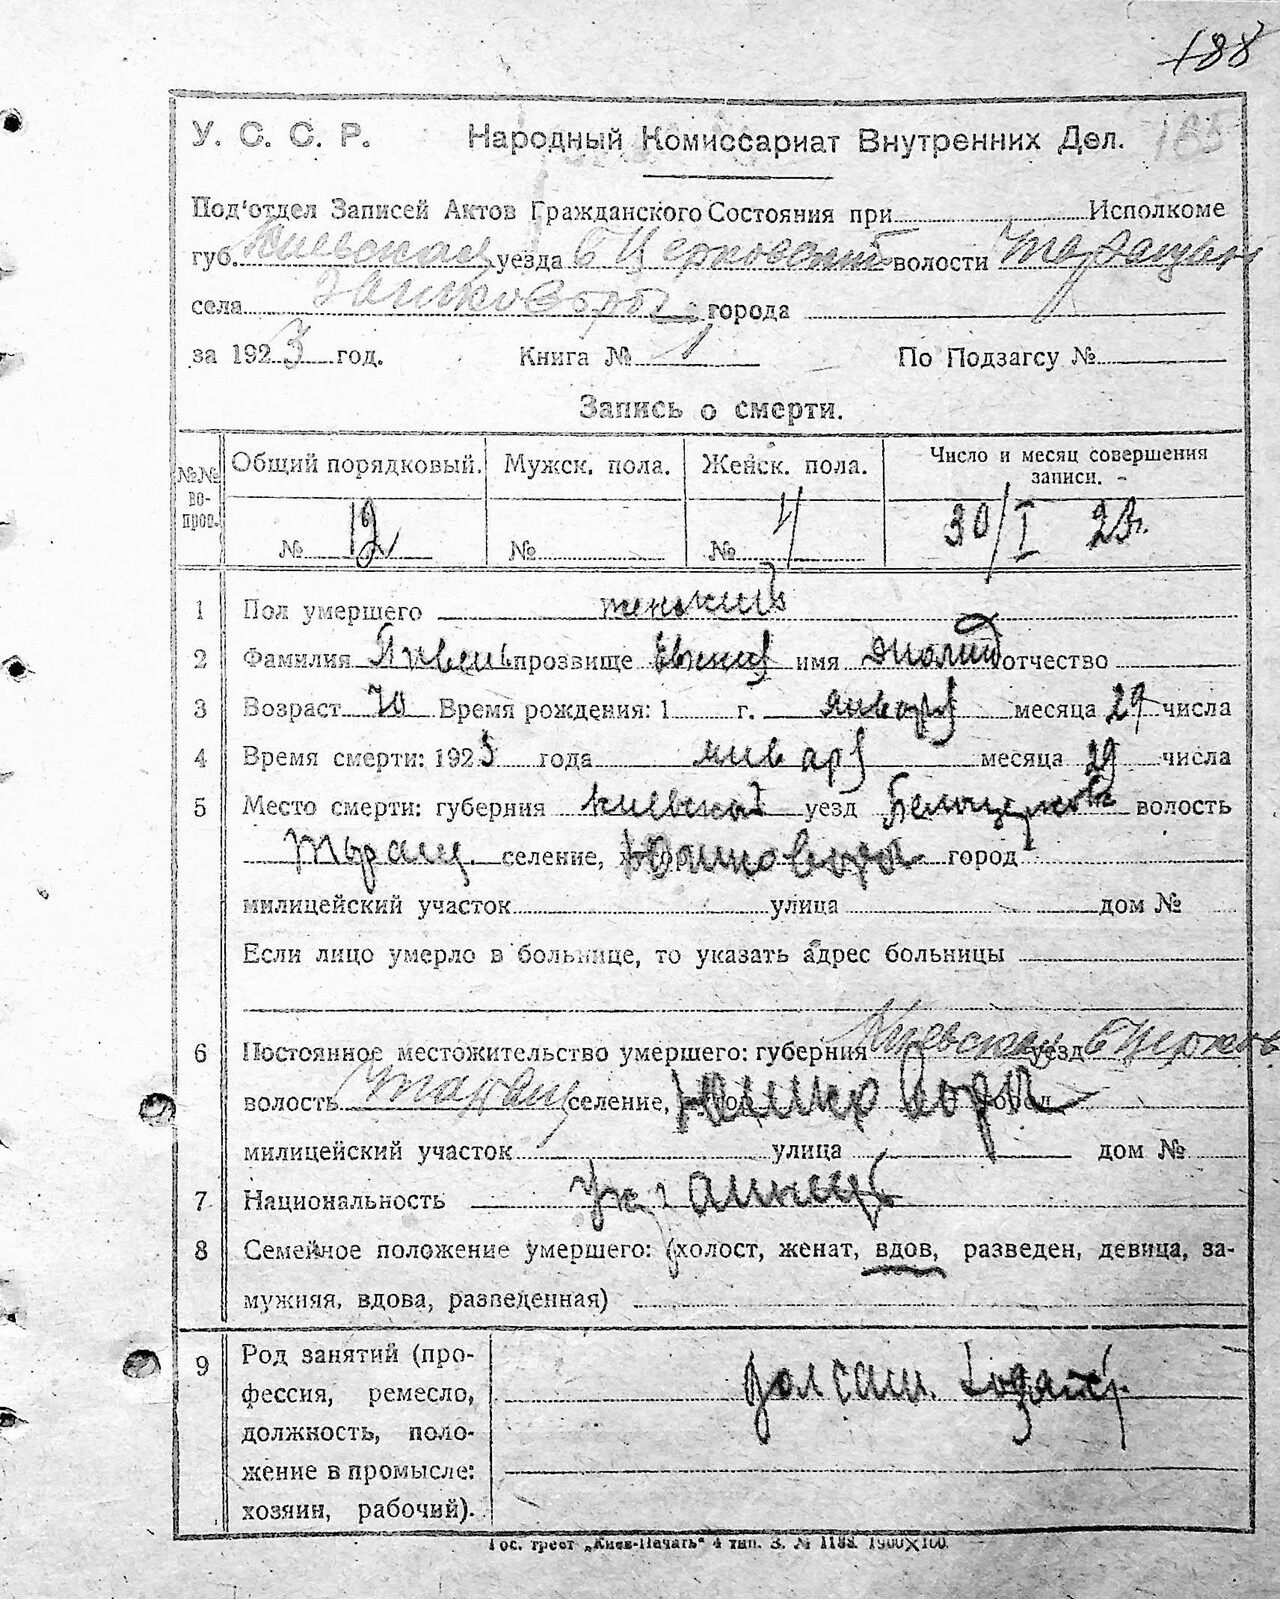 188
У. С. С. Р. Народный Комиссариат Внутренних Дел. 185
Под'отдел Записей Актов Гражданского Состояния при Исполкоме
губ. Киевская уезда БЦерковский волости Таращан
села города
за 1923 год. Книга № 1 По Подзагсу №
Запись о смерти.
№№ во- прос. Общий порядковый. Мужск. пола. Женск. пола. Число и месяц совершения записи.
№ 12 № № 4 30/I 23г.
1 Пол умершего женский
2 Фамилия Пивень прозвище имя отчество
3 Возраст 70 Время рождения: 1 г. января месяца 29 числа
4 Время смерти: 1923 года января месяца 29 числа
5 Место смерти: губерния Киевская уезд Белоцерков волость
Таращ. селение, город
милицейский участок улица дом №
Если лицо умерло в больнице, то указать адрес больницы
6 Постоянное местожительство умершего: губерния Киевская уезд БЦерков
волость Таращ селение, город
милицейский участок улица дом №
7 Национальность
8 Семейное положение умершего: (холост, женат, вдов, разведен, девица, за-
мужняя, вдова, разведенная)
9 Род занятий (про-
фессия, ремесло,
должность, поло-
жение в промысле:
хозяин, рабочий).
Гос. трест „Киев-Печать“ 4 тип. З. № 1188. 1900×100.